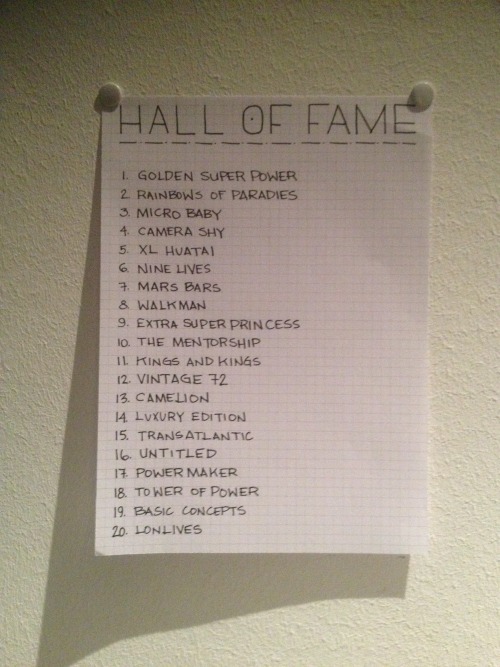 HALL OF FAME
1. GOLDEN SUPER POWER
2. RAINBOWS OF PARADIES
3. MICRO BABY
4. CAMERA SHY
5. XL HUATAI
6. NINE LIVES
7. MARS BARS
8. WALKMAN
9. EXTRA SUPER PRINCESS
10. THE MENTORSHIP
11. KINGS AND KINGS
12. VINTAGE 72
13. CAMELION
14. LUXURY EDITION
15. TRANSATLANTIC
16. UNTITLED
17. POWER MAKER
18. TOWER OF POWER
19. BASIC CONCEPTS
20. LONLIVES